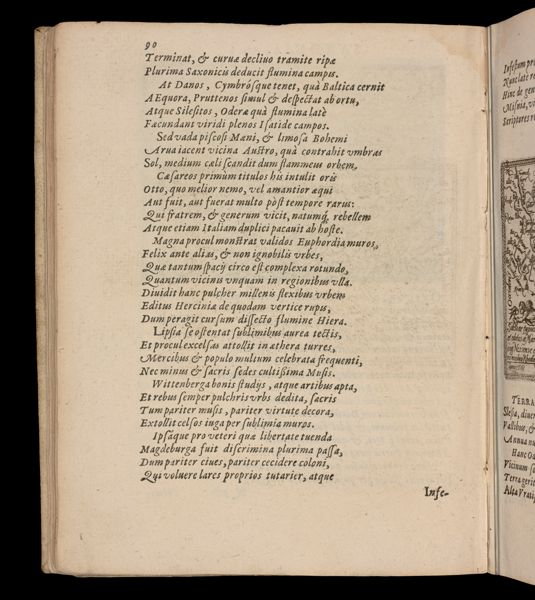 90
Terminat, & curuæ decliuo tramite ripæ
Plurima Saxonicis deducit flumina campis.
At Danos, Cymbrósque tenet, quà Baltica cernit
AEquora, Pruttenos simul & despectat ab ortu,
Atque Silesitos, Oderæ quà flumina latè
Fæcundant viridi plenos Isatide campos.
Sed vada piscosi Mæni, & limosa Bohemi
Arua iacent vicina Austro, quà contrahit vmbras
Sol, medium cæli scandit dum flammeus orbem.
Cæsareos primùm titulos his intulit oris
Otto, quo melior nemo, vel amantior æqui
Aut fuit, aut fuerat multo pòst tempore rarus:
Qui fratrem, & generum vicit, natumq́; rebellem
Atque etiam Italiam duplici pacauit ab hoste.
Magna procul monstrat validos Euphordia muros,
Felix ante alias, & non ignobilis vrbes,
Quæ tantum spacij circo est complexa rotundo,
Quantum vicinis vnquam in regionibus vlla.
Diuidit hanc pulcher millenis flexibus vrbem
Editus Herciniæ de quodam vertice rupis,
Dum peragit cursum dissecto flumine Hiera.
Lipsia se ostentat sublimibus aurea tectis,
Et procul excelsas attollit in æthera turres,
Mercibus & populo multum celebrata frequenti,
Nec minus & sacris sedes cultissima Musis.
Wittenberga bonis studijs, atque artibus apta,
Et rebus semper pulchris vrbs dedita, sacris
Tum pariter musis, pariter virtute decora,
Extollit celsos iuga per sublimia muros.
Ipsáque pro veteri qua libertate tuenda
Magdeburga fuit discrimina plurima passa,
Dum pariter ciues, pariter cecidere coloni,
Qui voluere lares proprios tutarier, atque
Infe-
Infestum pr
Nunc latè re
Hinc de gen
Misnia, v
Scriptores r
TERRA
Slesa, diue
Vastibus, &
Annua nu
Hanc Od
Vicinum s
Terra gerit
Alta Vrati